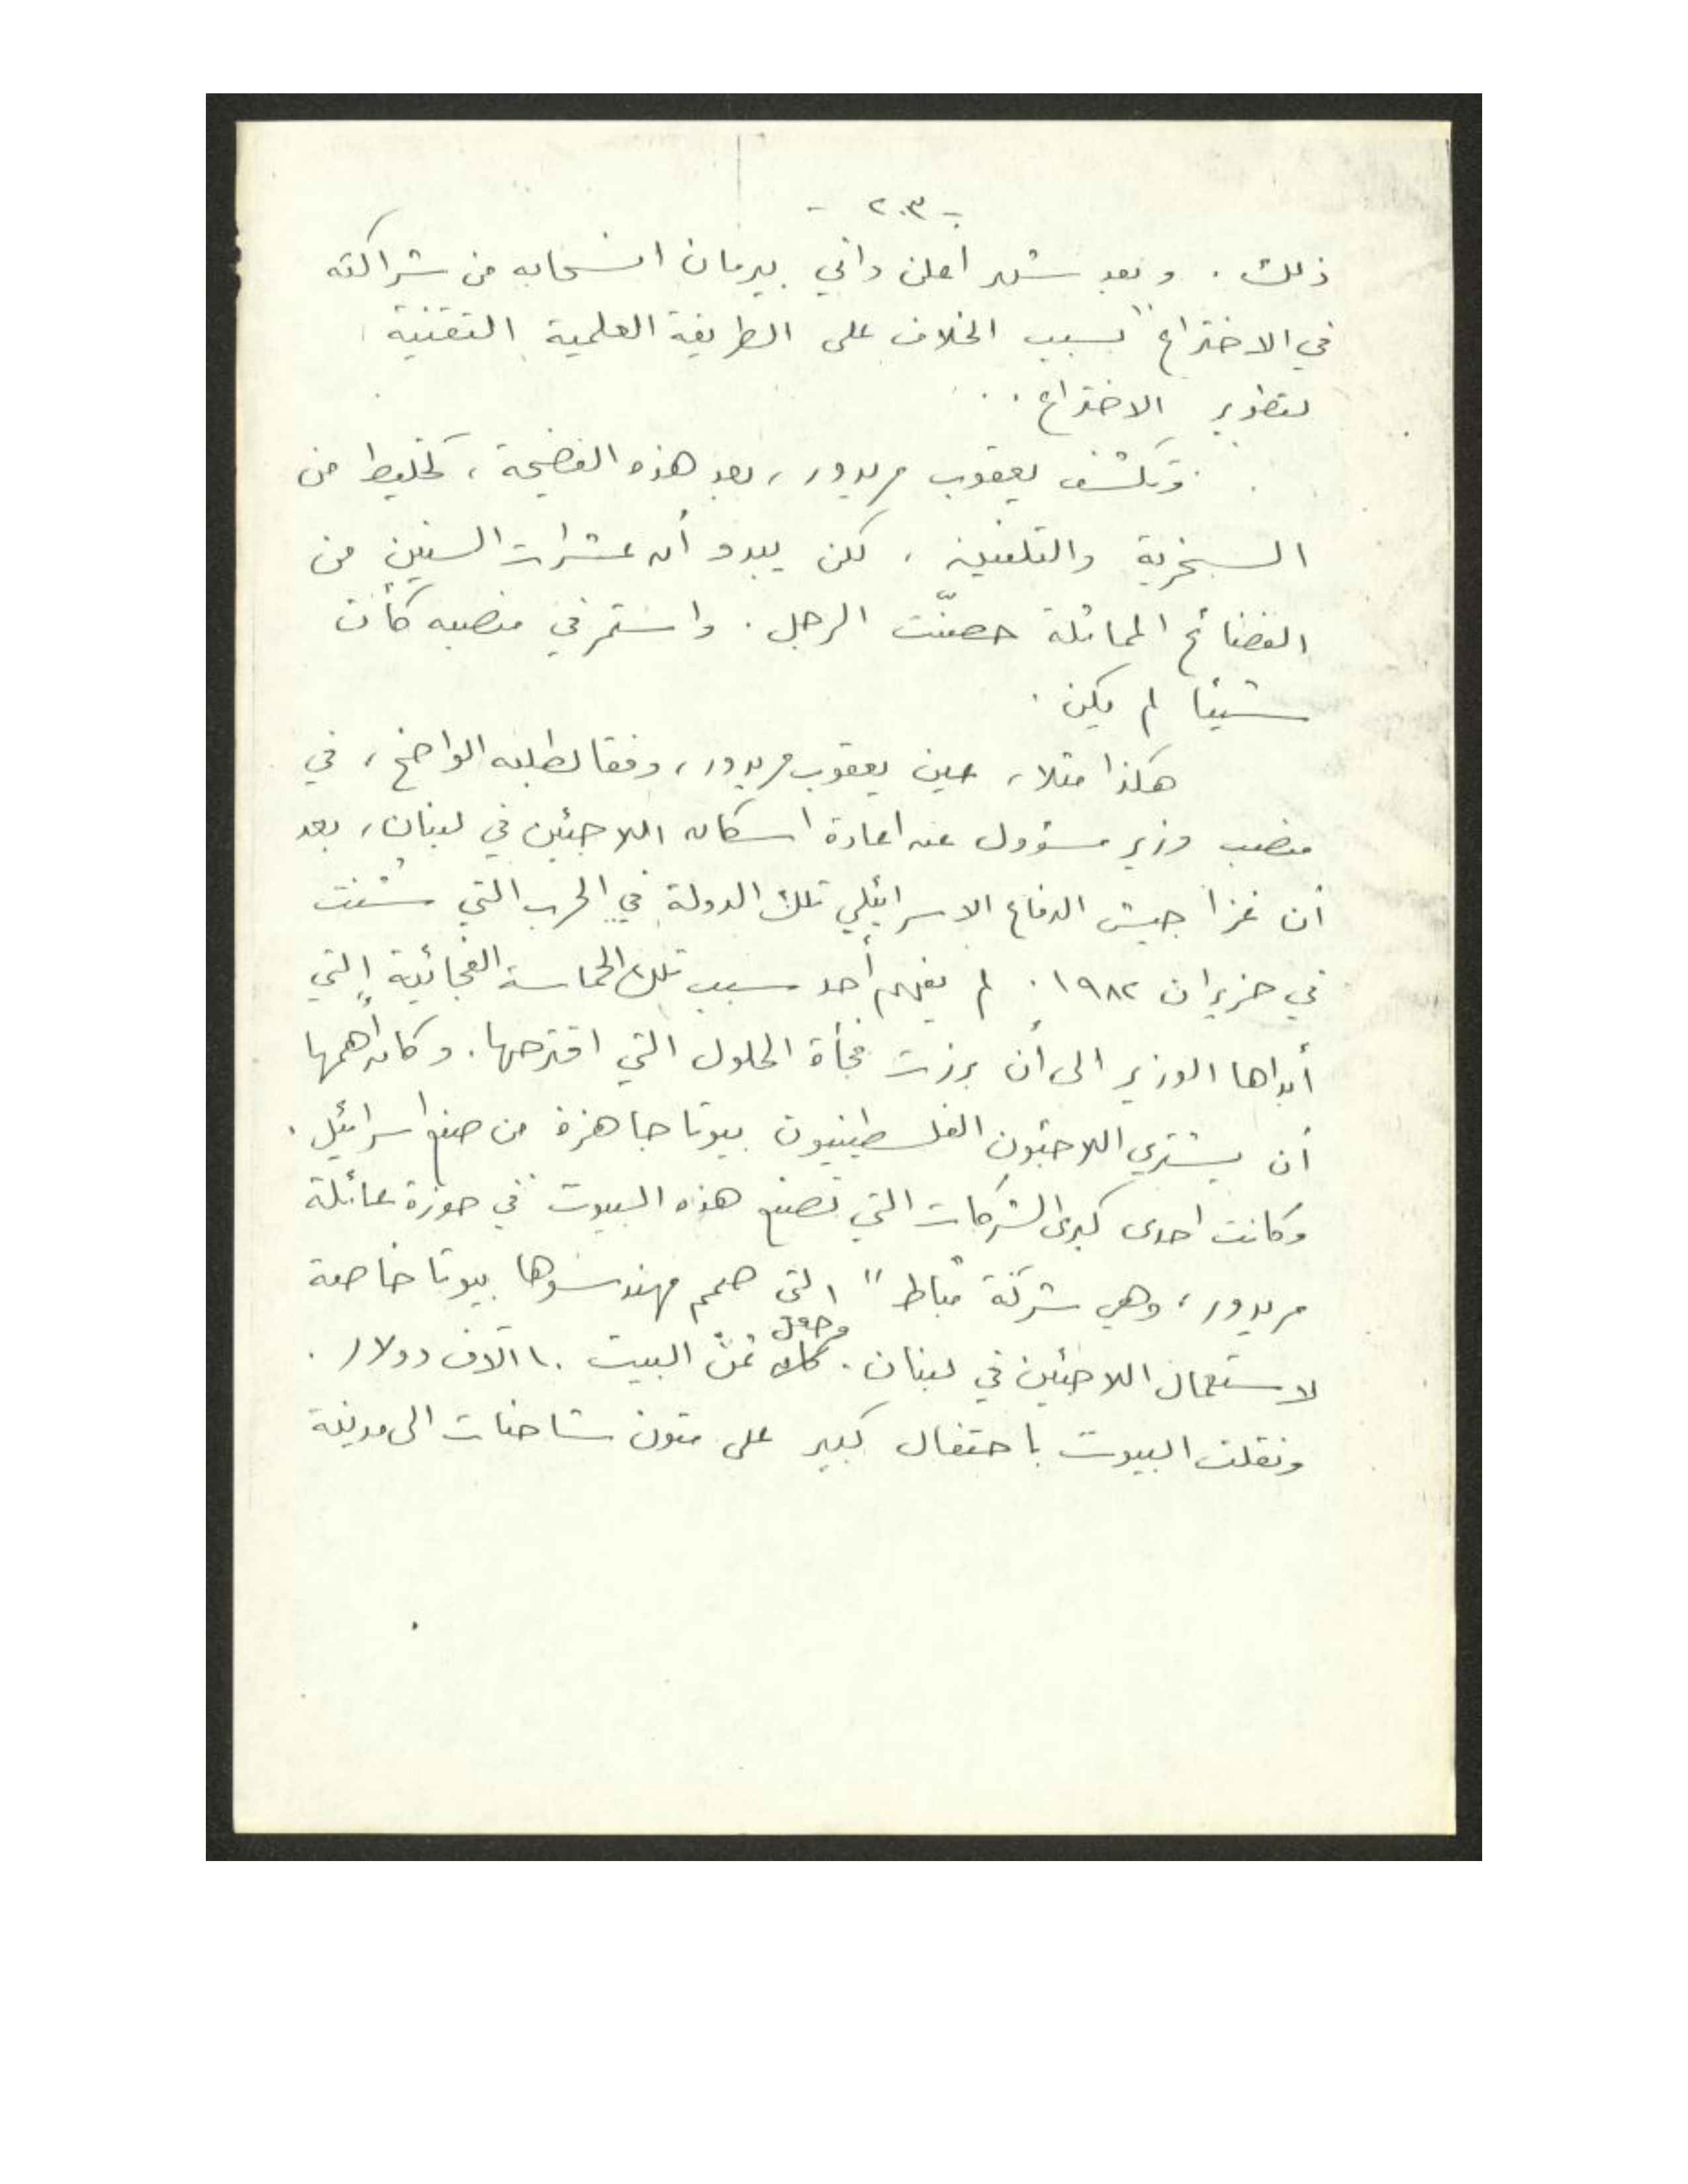 - ٢٠٣ -
ذلك . وبعد شهر أعلن داني بيرمان انسحابه من شراكته
في الاختراع "بسبب الخلاف على الطريقة العلمية التقنية
لتطوير الاختراع ..
وتكشف يعقوب مريدور ، بعد هذه الفضيحة ، كخليط من
السخرية والتلفيق . لكن يبدو أن عشرات السنين من
الفضائح المماثلة حصنّت الرجل . واستمر في منصبه كأن
شيئا لم يكن .
هكذا مثلا ، عين يعقوب مريدور ، وفقا لطلبه الواضح ، في
منصب وزير مسؤول عن اعادة اسكان اللاجئين في لبنان ، بعد
أن غزا جيش الدفاع الاسرائيلي تلك الدولة في الحرب التي شنت
في حزيران ١٩٨٢ . لم يفهم أحد سبب تلك الحماسة الفجائية التي
أبداها الوزير الى أن برزت فجأة الحلول التي اقترحها . وكان أهمها
أن يشتري اللاجئون الفلسطينيون بيوتا جاهزة من صنع اسرائيل .
وكانت احدى كبرى الشركات التي تصنع هذه البيوت في حوزة عائلة
مريدور ، وهي شركة "مباط" التي صمم مهندسوها بيوتا خاصة
لاستعمال اللاجئين في لبنان . وجعل ثمن البيت ١٠ آلاف دولار .
ونقلت البيوت باحتفال كبير على متون شاحنات الى مدينة